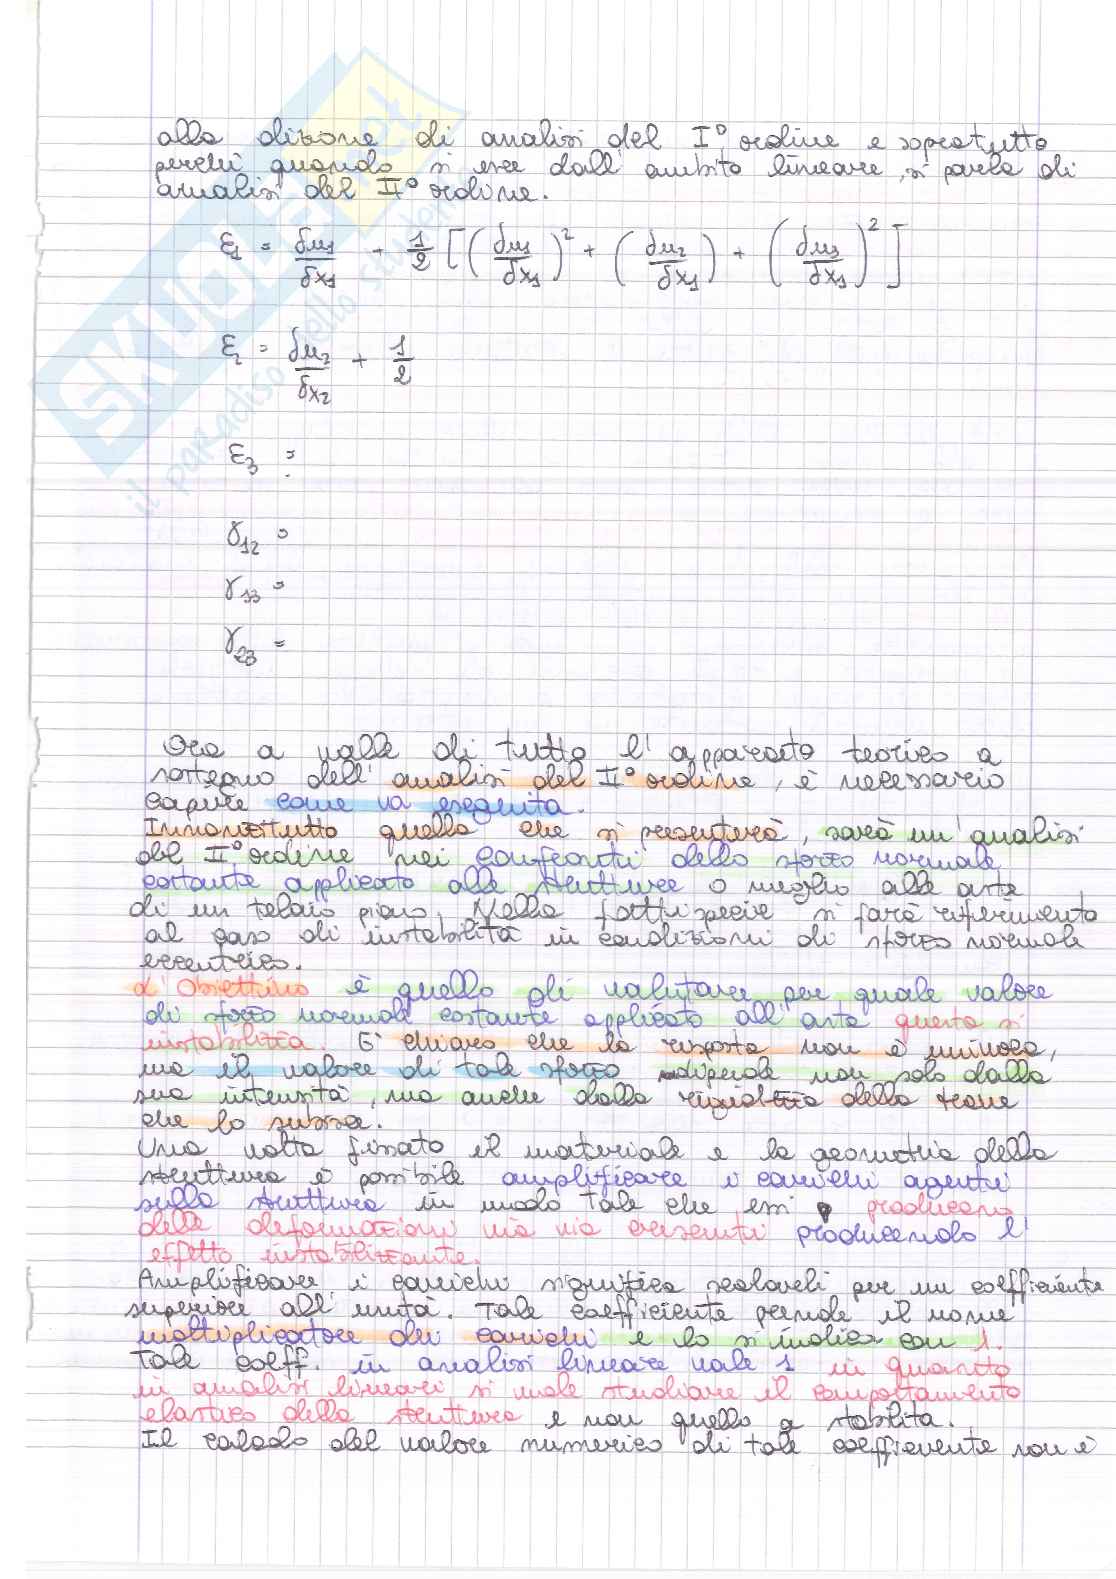 alla dizione di analisi del I° ordine e sopratutto
perchè quando si esce dall'ambito lineare, si parla di
analisi del II° ordine.
ε1 = δu1/δx1 + 1/2 [(δu1/δx1)² + (δu2/δx1) + (δu3/δx1)²]
ε2 = δu2/δx2 + 1/2
ε3 =
γ12 =
γ13 =
γ23 =
Ora a valle di tutto l'apparato teorico a
sostegno dell'analisi del II° ordine, è necessario
capire come va eseguita.
Innanzitutto quella che si presenterà, sarà un'analisi
del II° ordine nei confronti dello sforzo normale
costante applicato alle strutture o meglio alle aste
di un telaio piano. Nella fattispecie si farà riferimento
al caso di instabilità in condizioni di sforzo normale
eccentrico.
L'obiettivo è quello di valutare per quale valore
di sforzo normale costante applicato all'asta questa si
instabilizza. E' chiaro che la risposta non è univoca,
ma il valore di tale sforzo dipende non solo dalla
sua intensità, ma anche dalla rigidezza della trave
che lo subisce.
Una volta fissato il materiale e la geometria della
struttura è possibile amplificare i carichi agenti
sulla struttura in modo tale che essi producano
delle deformazioni via via crescenti producendo l'
effetto instabilizzante.
Amplificare i carichi significa scalarli per un coefficiente
superiore all'unità. Tale coefficiente prende il nome
moltiplicatore dei carichi e lo si indica con λ.
Tale coeff. in analisi lineare vale 1 in quanto
in analisi lineari si vuole studiare il comportamento
elastico della struttura e non quello a stabilità.
Il calcolo del valore numerico di tale coefficiente non è
SKUOLA.net
il paradiso dello studente